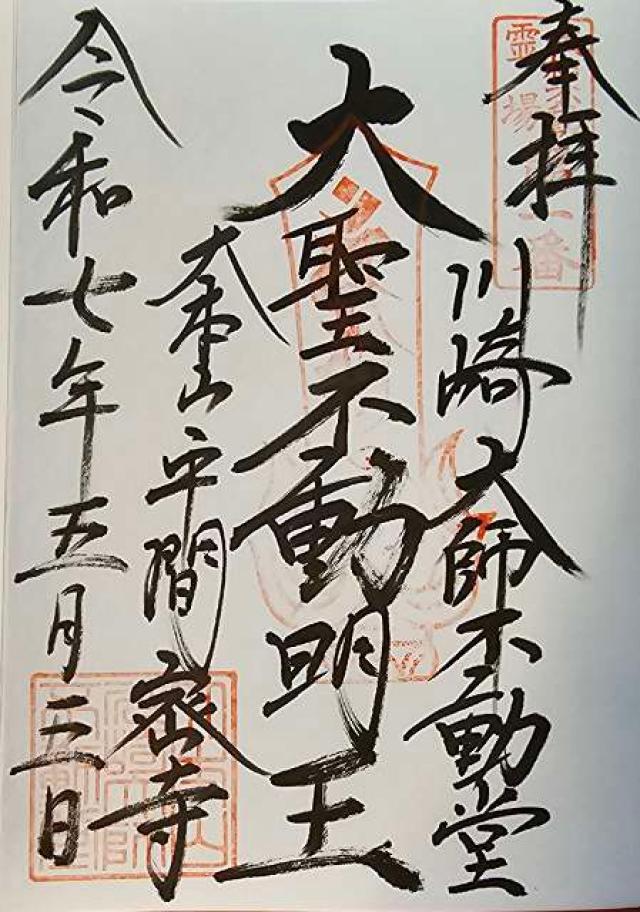 奉拝
靈場
一番
川崎大師不動堂
大聖不動明王
大本山平間密寺
令和七年五月三日